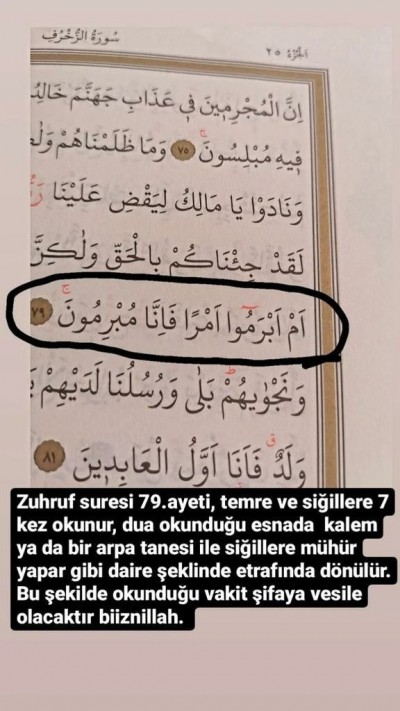 سُورَةُ الزُّخْرُفِ
اَلْجُزْءُ ٢٥
اِنَّ الْمُجْرِمٖينَ فٖى عَذَابِ جَهَنَّمَ
فٖيهِ مُبْلِسُونَ ۚ ٧٥ وَمَا ظَلَمْنَاهُمْ
وَنَادَوْا يَا مَالِكُ لِيَقْضِ عَلَيْنَا
لَقَدْ جِئْنَاكُمْ بِالْحَقِّ وَلٰكِنَّ
اَمْ اَبْرَمُٓوا اَمْرًا فَاِنَّا مُبْرِمُونَ ۚ ٧٩
وَنَجْوٰيهُمْ ۜ بَلٰى وَرُسُلُنَا لَدَيْهِمْ
وَلَدٌ ۗ فَاَنَا اَوَّلُ الْعَابِدٖينَ ٨١
Zuhruf suresi 79.ayeti, temre ve siğillere 7
kez okunur, dua okunduğu esnada kalem
ya da bir arpa tanesi ile siğillere mühür
yapar gibi daire şeklinde etrafında dönülür.
Bu şekilde okunduğu vakit şifaya vesile
olacaktır biiznillah.